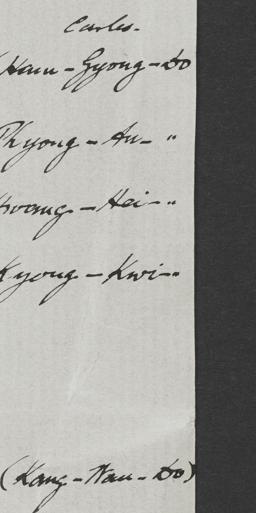 Carles.
Ham-Gyong-do
Phyong-An- "
Hoang-Hei- "
Kyong-Kwi- "
(Kang-Nan-do)